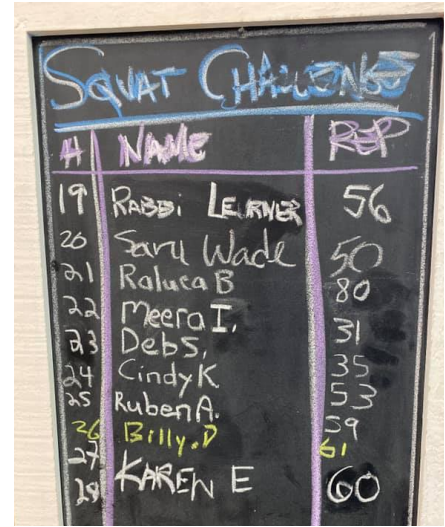 SQUAT CHALLENGE
# NAME REP
19 RABBI LERNER 56
20 Saru Wade 50
21 Raluca B 80
22 Meera I. 31
23 Deb S. 35
24 Cindy K. 53
25 Ruben A. 59
26 Billy.D 61
27
28 KAREN E 60